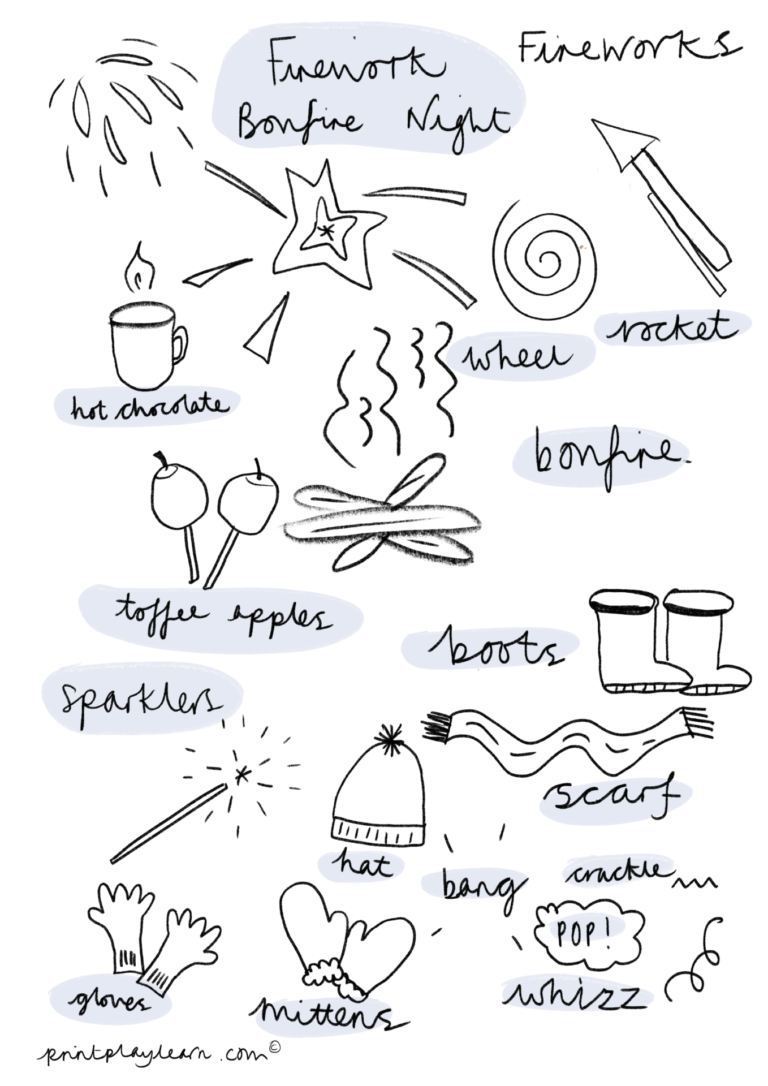 Firework
Bonfire Night
Fireworks
rocket
wheel
hot chocolate
bonfire.
toffee apples
boots
sparklers
scarf
hat
bang
crackle
POP!
gloves
mittens
whizz
printplaylearn.com©